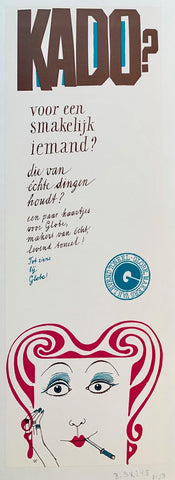 KADO?
voor een
smakelijk
iemand?
die van
échte dingen
houdt?
een paar kaartjes
voor Globe,
makers van écht,
levend toneel!
Tot ziens
bij
Globe!